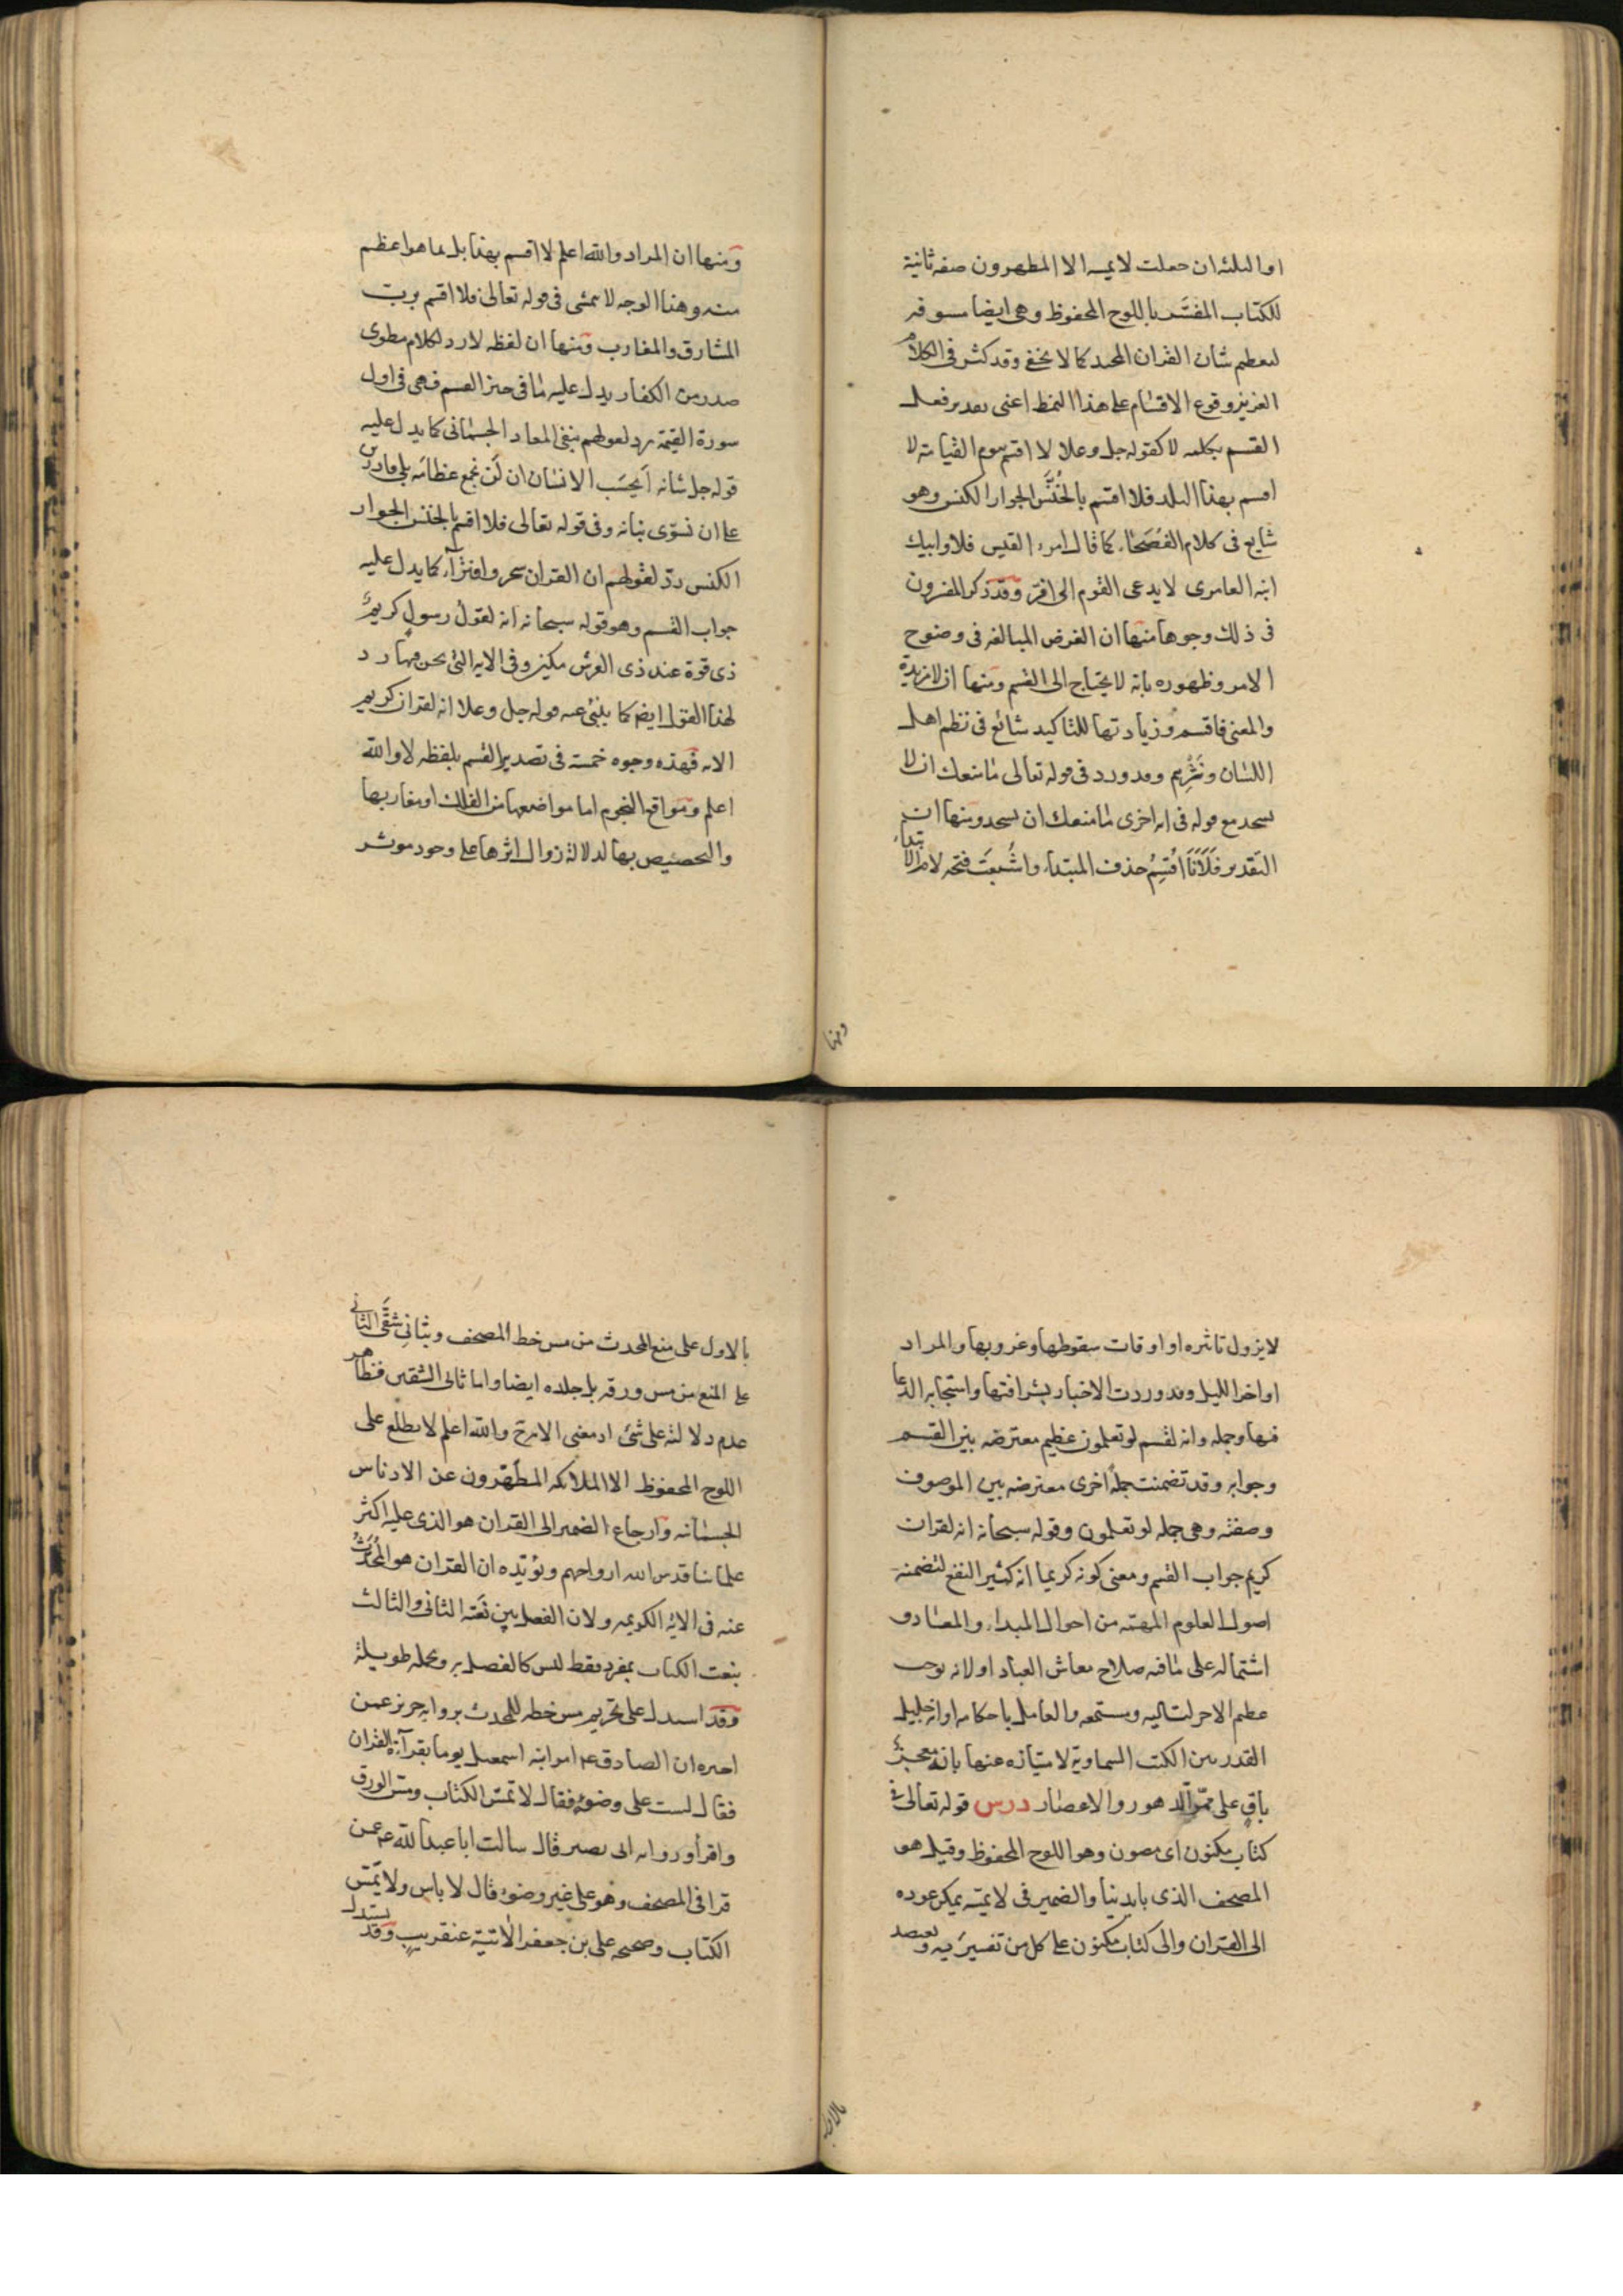 او الثلثه ان جعلت لا يمسه الا المطهرون صفه ثانية
للكتاب المفسَّر باللوح المحفوظ وهى ايضا مسوقه
لتعظيم شان القران المجيد كما لا يخفى وقد كثر فى الكلام
العزيز وقوع الاقسام على هذا النمط اعنى تصدير فعل
القسم بكلمه لا كقوله جل وعلا لا اقسم بيوم القيامة لا
اقسم بهذا البلد فلا اقسم بالخُنَّس الجوار الكنس وهو
شايع فى كلام الفُصَحاء كما قال امرء القيس فلا وابيك
ابنه العامرى لا يدعى القوم انى افر وقد ذكر المفسرون
فى ذلك وجوها منها ان الغرض المبالغه فى وضوح
الامر وظهوره بانه لا يحتاج الى القسم ومنها ان لا مزيدة
والمعنى فاقسم وزيادتها للتاكيد شائع فى نظم اهل
اللسان ونَثْرِهِم وقد ورد فى قوله تعالى ما منعك ان لا
تسجد مع قوله فى ايه اخرى ما منعك ان تسجد ومنها ان
التقدير فَلَأَنَا اُقسِمُ حذف المبتداء واشُبِعَت فتحه لام الابتداء
ومنها
ومنها ان المراد والله اعلم لا اقسم بهذا بل بما هو اعظم
منه وهذا الوجه لا يتمشى فى قوله تعالى فلا اقسم برب
المشارق والمغارب ومنها ان لفظه لا رد لكلام مطوى
صدر من الكفار يدل عليه ما فى حيز القسم فهى فى اول
سورة القيمة رد لقولهم بنفى المعاد الجسمانى كما يدل عليه
قوله جل شانه اَيحسَب الانسان ان لَن نجمع عظامَه بلى قادرين
على ان نسوّى بنانه وفى قوله تعالى فلا اقسم بالخنس الجوار
الكنس ردّ لقولهم ان القران سحر وافتراء كما يدل عليه
جواب القسم وهو قوله سبحانه انه لقول رسول كريم
ذى قوة عند ذى العرش مكين وفى الايه التى نحن فيها رد
لهذا القول ايضا كما ينبئ عنه قوله جل وعلا انه لقران كريم
الايه فهذه وجوه خمسة فى تصدير القسم بلفظه لا والله
اعلم ومواقع النجوم اما مواضعها من الفلك او مغاربها
والتخصيص بها لدلالة زوال اثرها على وجود موثر
لا يزول تاثيره او اوقات سقوطها وغروبها والمراد
اواخر الليل وقد وردت الاخبار بشرافتها واستجابه الدعا
فيها وجمله وانه لقسم لو تعلمون عظيم معترضه بين القسم
وجوابه وقد تضمنت جملة اخرى معترضه بين الموصوف
وصفته وهى جمله لو تعلمون وقوله سبحانه انه لقران
كريم جواب القسم ومعنى كونه كريما انه كثير النفع لتضمنه
اصول العلوم المهمة من احوال المبداء والمعاد و
اشتماله على ما فيه صلاح معاش العباد او لانه يوجب
عظيم الاجر لتاليه ومستمعه والعامل باحكامه او انه جليل
القدر بين الكتب السماوية لامتيازه عنها بانه معجز
باقٍ على ممرّ الدهور والاعصار درس قوله تعالى فى
كتاب مكنون اى مصون وهو اللوح المحفوظ وقيل هو
المصحف الذى بايدينا والضمير فى لا يمسّه يمكن عوده
الى القران والى كتاب مكنون على كل من تفسيرَيه ويعتضد
بالاول
بالاول على منع المحدث من مس خط المصحف وبثانى شقّى الثانى
على المنع من مس ورقه بل جلده ايضا واما ثانى الشقين فظاهر
عدم دلالته على شئ اذ معنى الاية ح والله اعلم لا يطلع على
اللوح المحفوظ الا الملائكه المطهّرون عن الادناس
الجسمانيه وارجاع الضمير الى القران هو الذى عليه اكثر
علمائنا قدس الله ارواحهم ويؤيّده ان القران هو المُحَدَّث
عنه فى الاية الكريمه ولان الفصل بين نعته الثانى والثالث
بنعت الكتاب بمفرد فقط ليس كالفصل به وبجمله طويلة
وقد استدل على تحريم مس خطه للمحدث بروايه حريز عمن
اخبره ان الصادق ع امر ابنه اسمعيل يوما بقرآءة القران
فقال لست على وضوءٍ فقال لا تمسّ الكتاب ومسّ الورق
واقرأه وروايه ابى بصير قال سالت ابا عبد الله ع عمن
قرا فى المصحف وهو على غير وضوء قال لا باس ولا يمسّ
الكتاب وصحيحه على بن جعفر الاتية عنقريب وقد يستدل